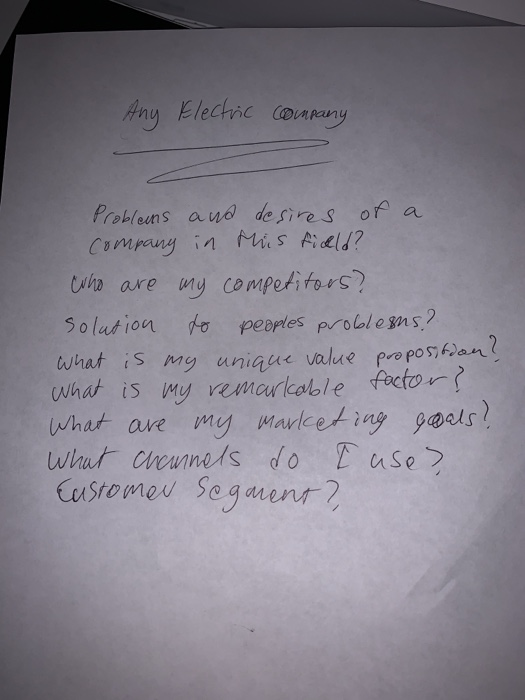 Any Electric Company
Problems and desires of a
Company in this field?
Who are my competitors?
Solution to peoples problems?
What is my unique value proposition?
What is my remarkable factor?
What are my marketing goals?
What channels do I use?
Customer Segment?